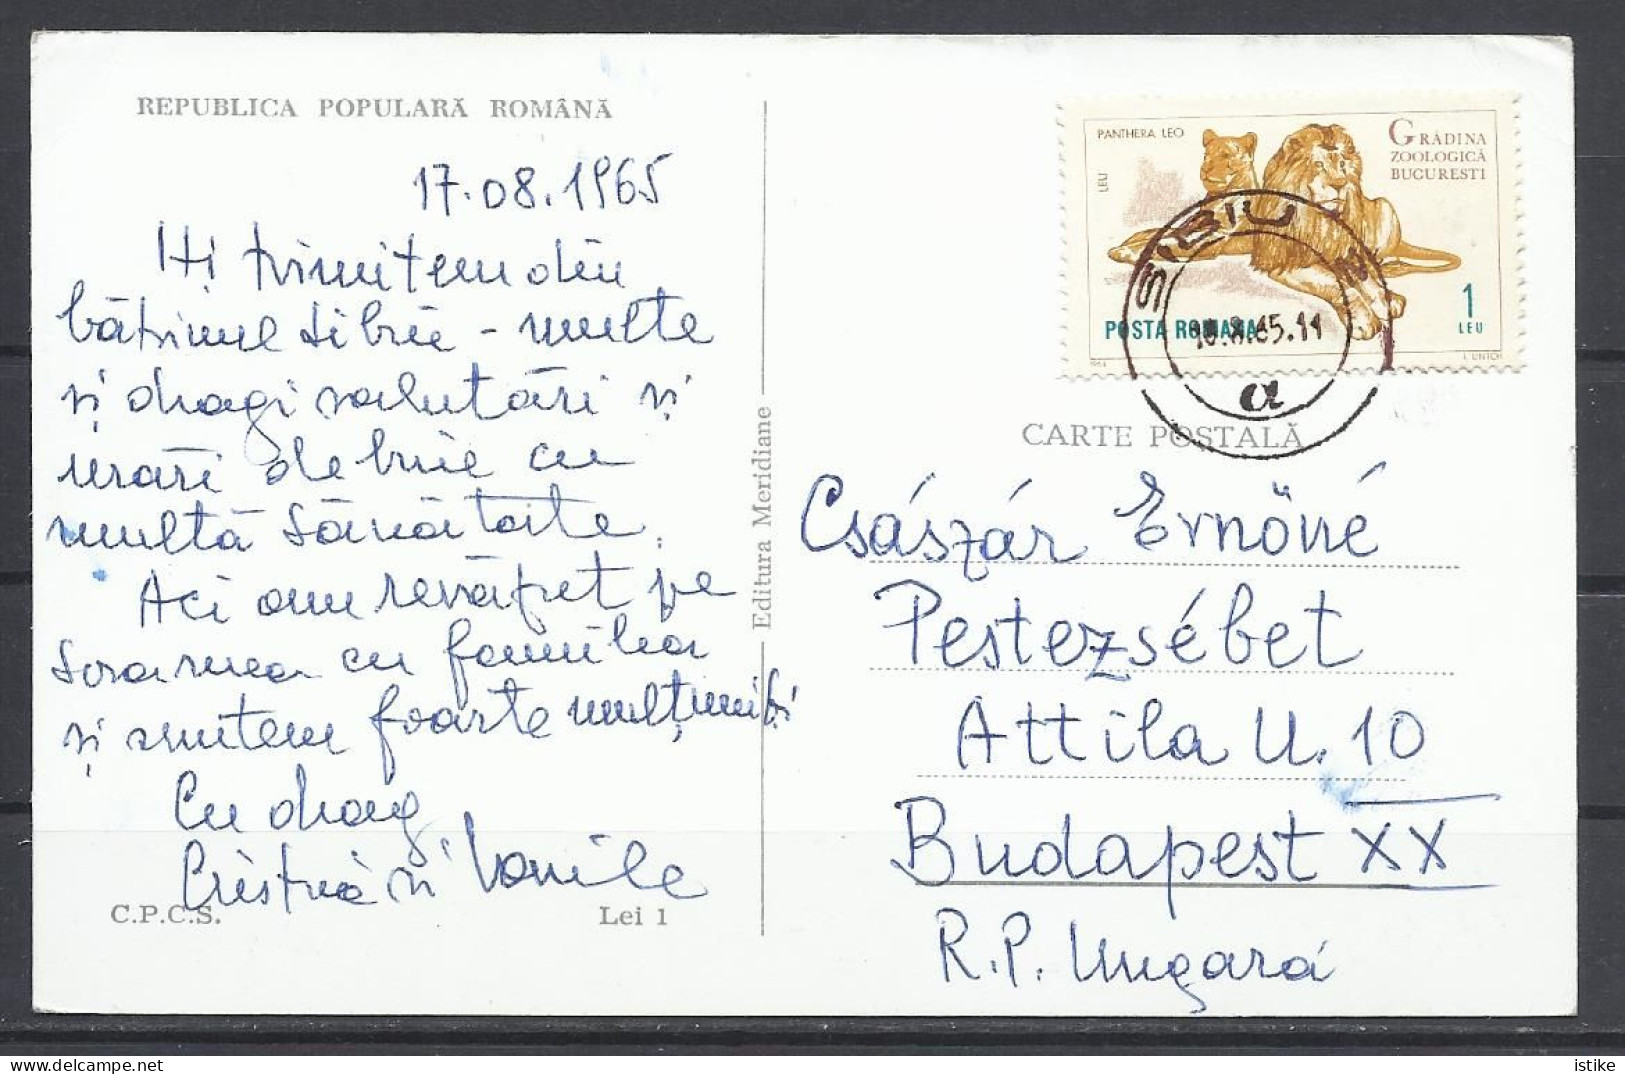 REPUBLICA POPULARĂ ROMÂNĂ
17.08.1965
Iți trimitem din
bătrînul Sibiu - multe
și dragi salutări și
urări de bine cu
multă sănătate.
Aci am revăzut pe
sora mea cu familia
și suntem foarte mulțumiți
Cu drag,
Cristina și Vasile
C.P.C.S.
Lei 1
Editura Meridiane
PANTHERA LEO
LEU
GRĂDINA
ZOOLOGICĂ
BUCUREȘTI
POSTA ROMANA
1
LEU
1964
SIBIU
a
CARTE POȘTALĂ
Császár Ernőné
Pestezsébet
Attila U. 10
Budapest XX
R.P. Ungară
istike